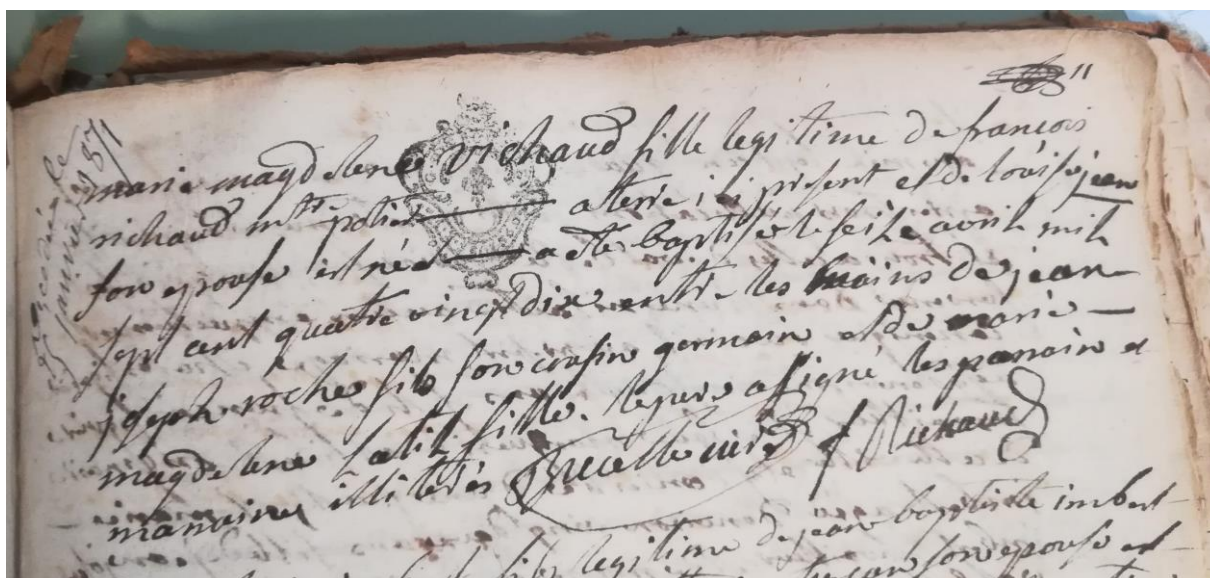 11
marie magdelene richaud fille legitime de francois
richaud mtre potier a terre ici present et de louise jean
son epouse est née a eté baptisée le seize avril mil
sept cent quatre vingt dix entre les mains de jean
joseph roche fils son cousin germain et de marie
magdelene fille. le pere a signé les parrain et
marraine illiterés curé f Richaud
fils legitime de jean baptiste imbert
son epouse est